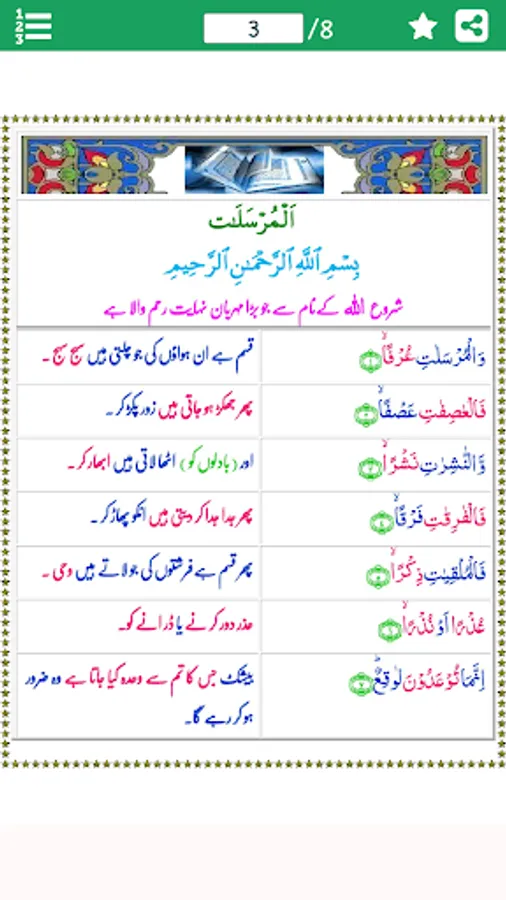 1
2
3
3 /8
اَلْمُرْسَلٰت
بِسْمِ ٱللَّهِ ٱلرَّحْمَـٰنِ ٱلرَّحِيمِ
شروع اللہ کے نام سے جو بڑا مہربان نہایت رحم والا ہے
وَالْمُرْسَلٰتِ عُرْفًاۙ ۝۱
قسم ہے ان ہواؤں کی جو چلتی ہیں سہج سہج ۔
فَالْعٰصِفٰتِ عَصْفًاۙ ۝۲
پھر جھکڑ ہو جاتی ہیں زور پکڑ کر ۔
وَّالنّٰشِرٰتِ نَشْرًاۙ ۝۳
اور (بادلوں کو) اٹھا لاتی ہیں ابھار کر ۔
فَالْفٰرِقٰتِ فَرْقًاۙ ۝۴
پھر جدا جدا کر دیتی ہیں انکو پھاڑ کر ۔
فَالْمُلْقِيٰتِ ذِكْرًاۙ ۝۵
پھر قسم ہے فرشتوں کی جو لاتے ہیں وحی ۔
عُذْرًا اَوْ نُذْرًاۙ ۝۶
عذر دور کرنے یا ڈرانے کو۔
اِنَّمَا تُوْعَدُوْنَ لَوَاقِعٌؕ ۝۷
بیشک جس کا تم سے وعدہ کیا جاتا ہے وہ ضرور
ہو کر رہے گا۔